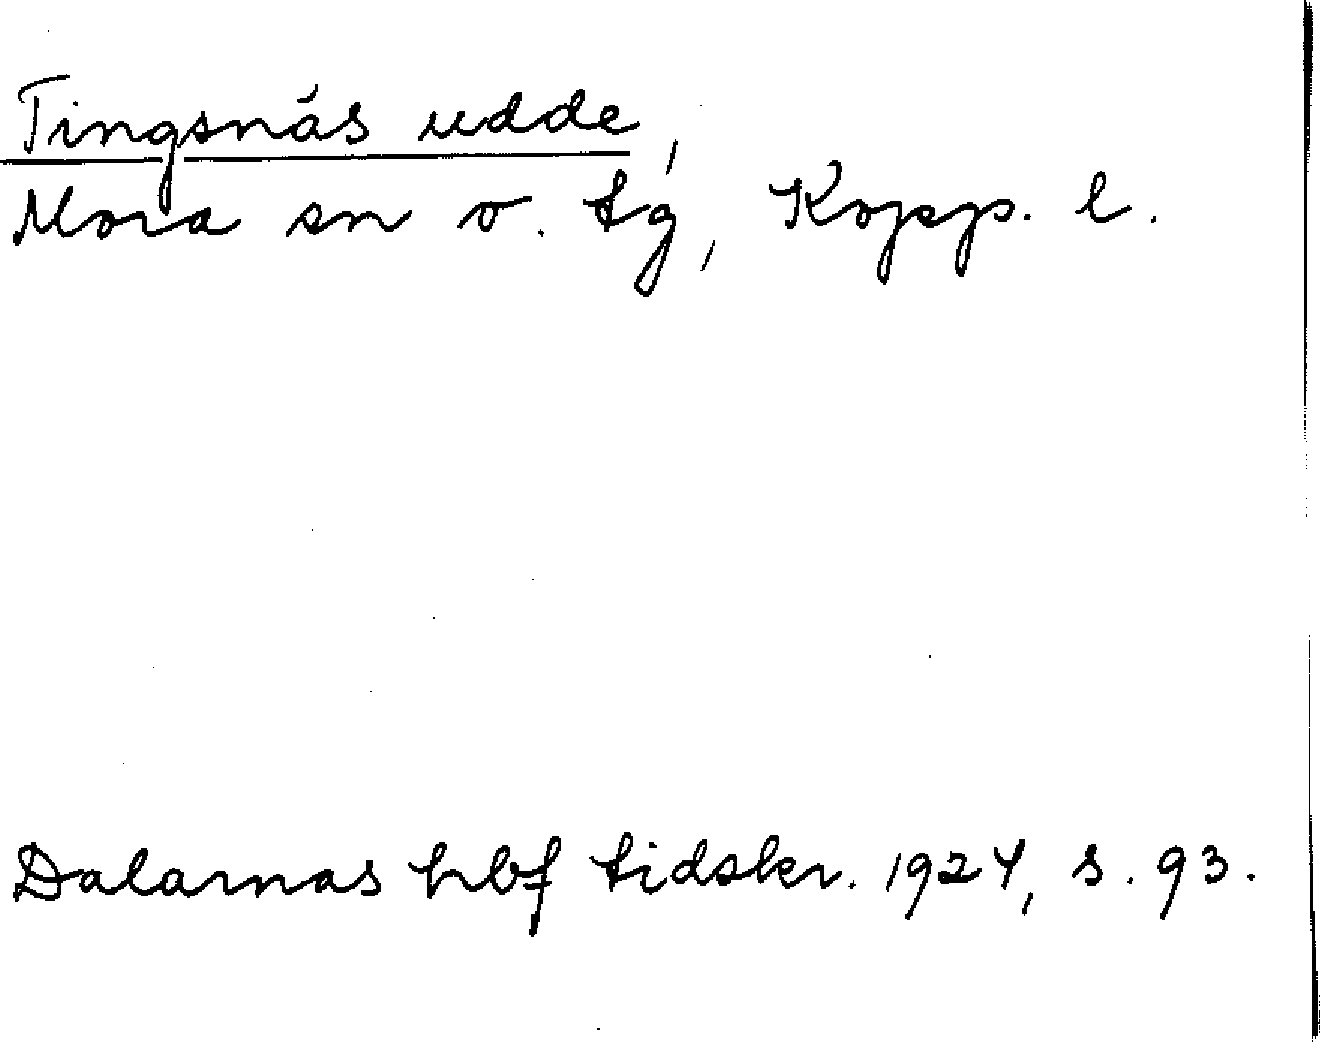 Tingsnäs udde,
Mora sn o. tg, Kopp. l.
Dalarnas hbf tidskr. 1924, s. 93.